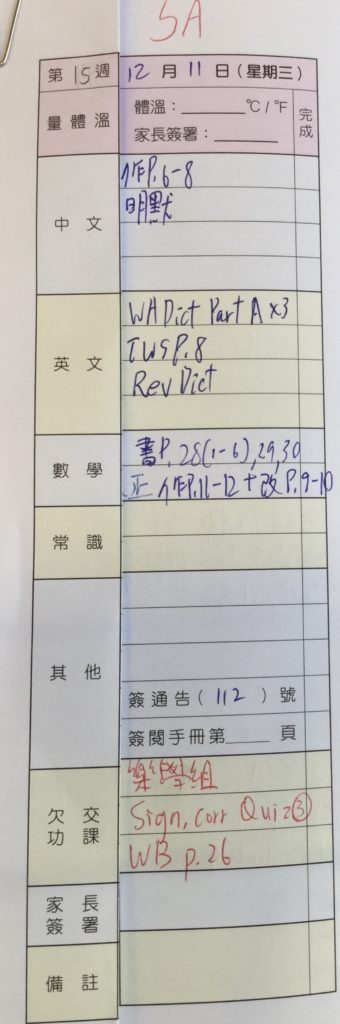 5A
第15週 12月11日(星期三)
量體溫 體溫:______℃/℉ 完成
家長簽署:______
中文 作P.6-8
明默
英文 WHDict Part A x3
TWS P.8
Rev Dict
數學 書P.28(1-6),29,30
正 作P.11-12+改P.9-10
常識
其他
簽通告(112)號
簽閱手冊第____頁
欠交功課 樂學組
Sign, corr Quiz③
WB p.26
家長簽署
備註